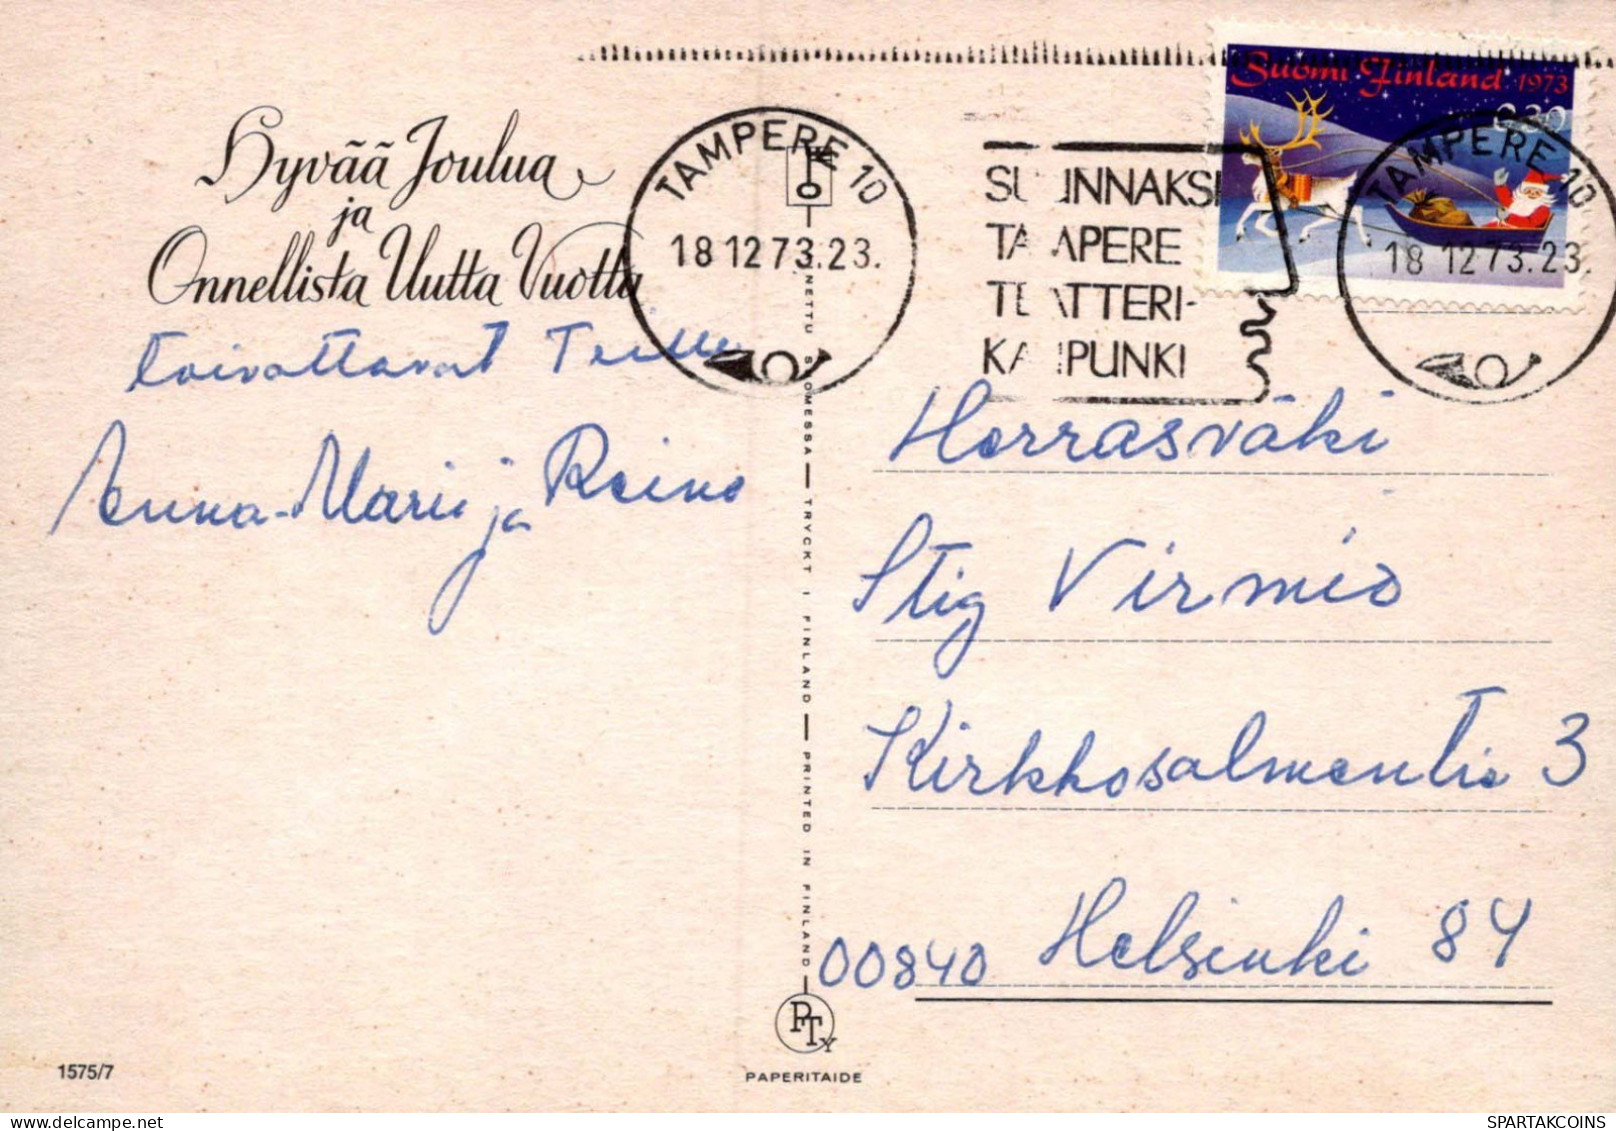 Hyvää Joulua
ja
Onnellista Uutta Vuotta
toivottavat Teille
Anna-Marii ja Reino
TAMPERE 10
18 12 73.23.
SUUNNAKSI
TAMPERE
TEATTERI-
KAUPUNKI
Suomi Finland 1973
0,30
TAMPERE 10
18 12 73.23.
Herrasväki
Stig Virmio
Kirkkosalmentie 3
00840 Helsinki 84
PAINETTU SUOMESSA — TRYCKT I FINLAND — PRINTED IN FINLAND
PTy
PAPERITAIDE
1575/7
SPARTAKCOINS